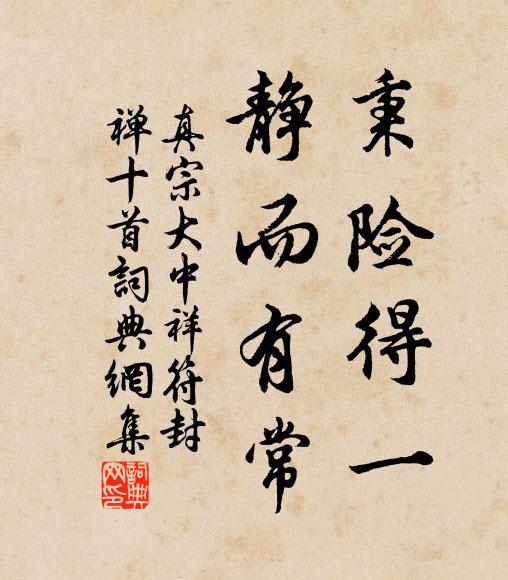 秉险得一
静而有常
真宗大中祥符封
禅十首詞典網集
詞典網印